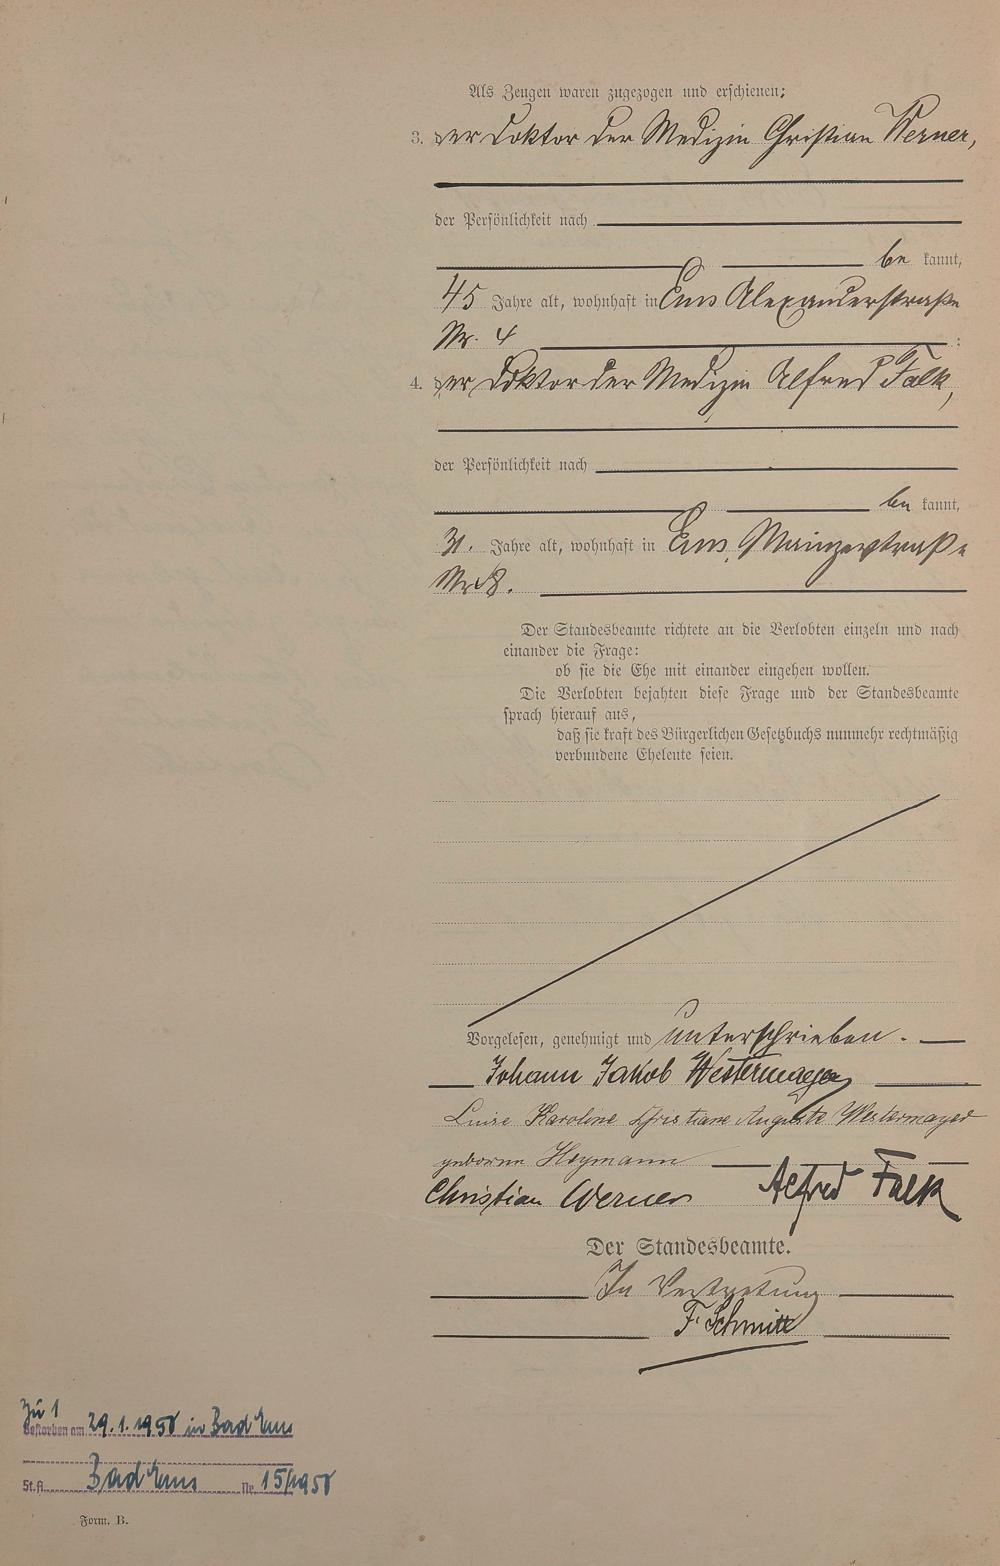 Als Zeugen waren zugezogen und erschienen:
3. der Doktor der Medizin Christian Werner,
der Persönlichkeit nach
be kannt,
45 Jahre alt, wohnhaft in Ems Alexanderstraße
Nr. 4 ;
4. der Doktor der Medizin Alfred Falk,
der Persönlichkeit nach
be kannt,
31. Jahre alt, wohnhaft in Ems, Mainzerstraße
Nr. 8.
Der Standesbeamte richtete an die Verlobten einzeln und nach
einander die Frage:
ob sie die Ehe mit einander eingehen wollen.
Die Verlobten bejahten diese Frage und der Standesbeamte
sprach hierauf aus,
daß sie kraft des Bürgerlichen Gesetzbuchs nunmehr rechtmäßig
verbundene Eheleute seien.
Vorgelesen, genehmigt und unterschrieben.
Johann Jakob Westermayer
Luise Karoline Christiane Auguste Westermayer
geborene Heymann
Christian Werner Alfred Falk
Der Standesbeamte.
In Vertretung
F. Schmitt
Zu 1
Gestorben am 29.1.1958 in Bad Ems
St.A. Bad Ems Nr. 15/1958
Form. B.